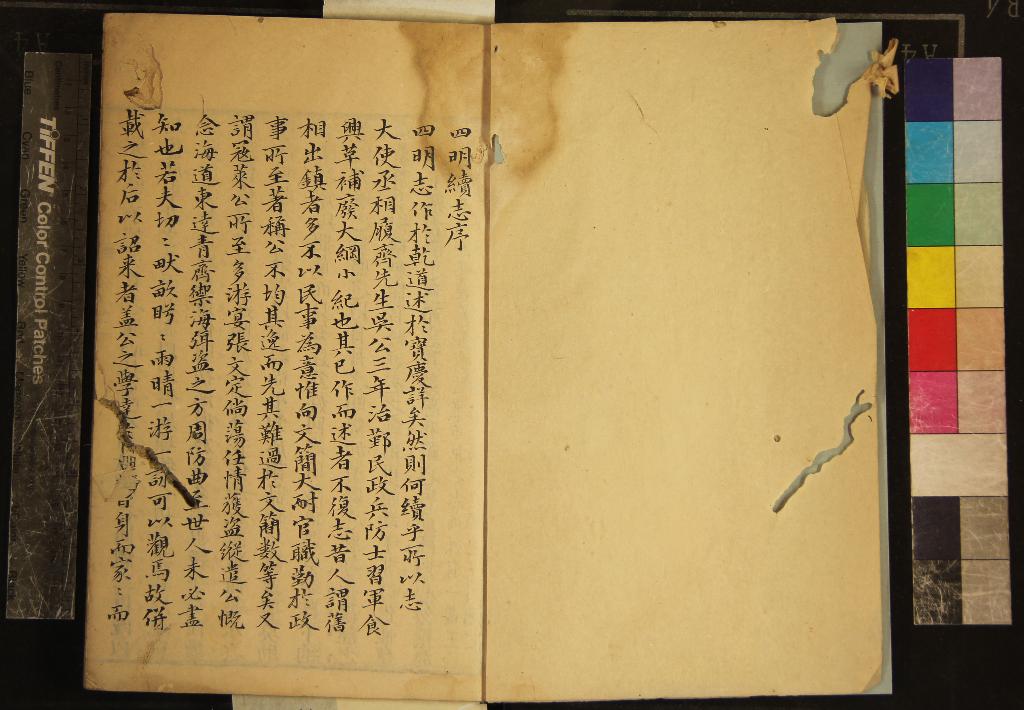 四明續志序
四明志作於乾道述於寶慶詳矣然則何續乎所以志
大使丞相履齊先生吳公三年治鄞民政兵防士習軍食
興草補廢大綱小紀也其已作而述者不復志昔人謂舊
相出鎮者多不以民事為意惟向文簡大耐官職勤於政
事所至著稱公不均其逸而先其難過於文簡數等矣又
謂冦萊公所至多游宴張文定倘蕩任情獲盜縱遣公慨
念海道東達青齊禦海弭盜之方周防曲至世人未必盡
知也若夫切〻畎畝盻〻雨晴一游一詞可以觀焉故併
載之於后以詔来者盖公之學達自身而家〻而
TIFFEN Color Control Patches
Blue
Cyan
Green
Yellow
A4